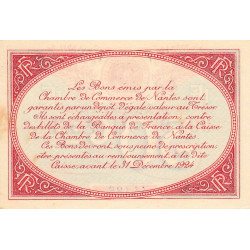 Les Bons émis par la
Chambre de Commerce de Nantes sont
garantis par un dépôt d'égale valeur au Trésor
Ils sont échangeables à présentation, contre
des billets de la Banque de France, à la Caisse
de la Chambre de Commerce de Nantes
Ces Bons devront, sous peine de prescription
être présentés au remboursement à la dite
Caisse, avant le 31 Décembre 1924